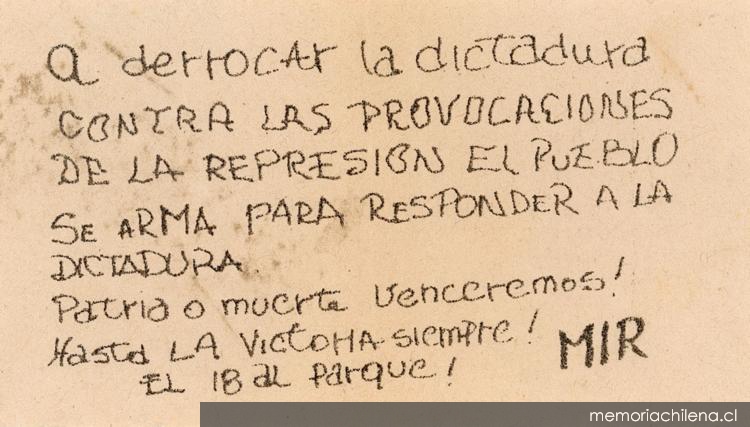 a derrocar la dictadura
CONTRA LAS PROVOCACIONES
DE LA REPRESION EL PUEBLO
SE ARMA PARA RESPONDER A LA
DICTADURA.
Patria o muerte Venceremos!
Hasta LA VICTORIA siempre!
MIR
EL 18 al parque!
memoriachilena.cl